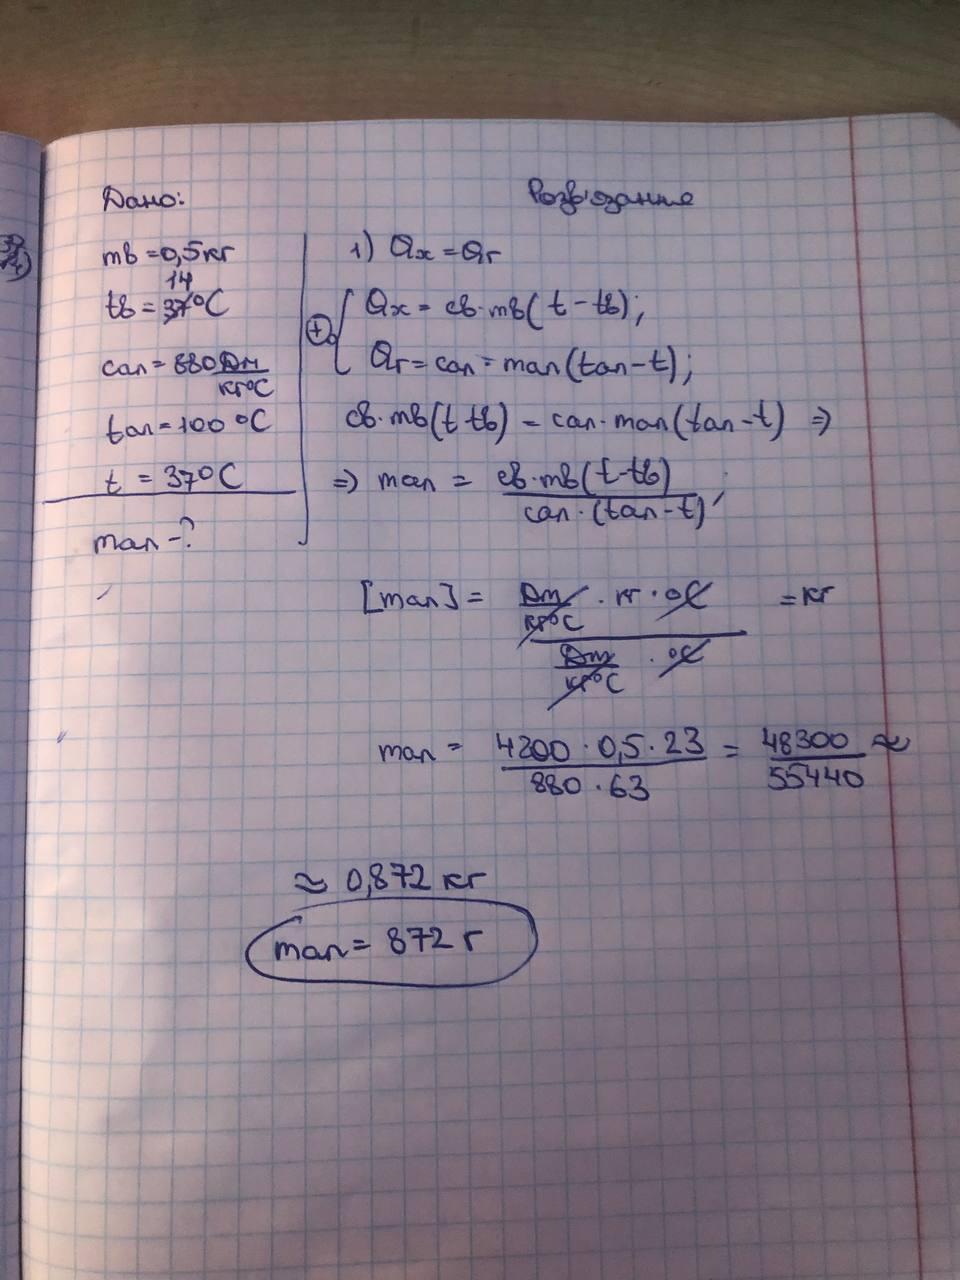 Дано:
mв = 0,5 кг
14
tв = 37°C
cал = 880 Дж
кг°C
tал = 100 °C
t = 37°C
mал - ?
Розв'язание
1) Qх = Qг
+
Qх = cв · mв ( t - tв) ;
Qг = cал = mал (tал - t) ;
cв · mв (t tв) = cал · mал (tал - t) ⇒
⇒ mал = cв · mв (t - tв)
cал · (tал - t) ;
[mал] = Дж · кг · °C = кг
кг°C
Дж · °C
кг°C
mал = 4200 · 0,5 · 23 = 48300 ≈
880 · 63 55440
≈ 0,872 кг
mал = 872 г